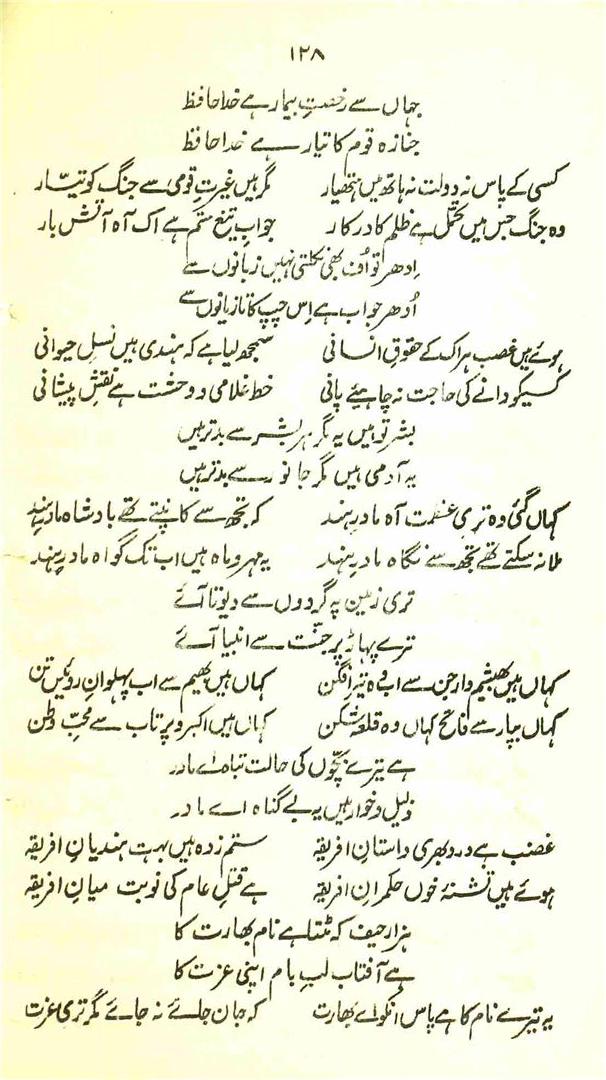 ۱۲۸
جہاں سے رخصتِ بیمار ہے خدا حافظ
جنازہ قوم کا تیار ہے خدا حافظ
کسی کے پاس نہ دولت نہ ہاتھ میں ہتھیار مگر ہیں غیرتِ قومی سے جنگ کو تیّار
وہ جنگ جس میں تحمّل ہے ظلم کا درکار جوابِ تیغِ ستم ہے اک آہ آتش بار
اِدھر تو اُف بھی نکلتی نہیں زبانوں سے
اُدھر جواب ہے اِس چپ کا تازیانوں سے
ہوئے ہیں غصب ہر اک کے حقوقِ انسانی سمجھ لیا ہے کہ ہندی ہیں نسلِ حیوانی
کسیکو دانے کی حاجت نہ چاہیئے پانی خط غلامی و وحشت ہے نقشِ پیشانی
بشر تو ہیں یہ مگر ہر بشر سے بدتر ہیں
یہ آدمی ہیں مگر جانور سے بدتر ہیں
کہاں گئی وہ تری عظمت آہ مادرِ ہند کہ تجھ سے کانپتے تھے بادشاہ مادرِ ہند
ملا نہ سکتے تھے تجھ سے نگاہ مادرِ ہند یہ مہر و ماہ ہیں اب تک گواہ مادرِ ہند
تری زمین پہ گردوں سے دیوتا آئے
ترے پہاڑ پر جنّت سے انبیا آئے
کہاں ہیں بھیشم وارجن سے اب وہ تیر افگن کہاں ہیں بھیم سے اب پہلوانِ روئیں تن
کہاں ہیں سے فاتح کہاں وہ قلعہ شکن کہاں ہیں اکبر و پرتاب سے محبِّ وطن
ہے تیرے بچّوں کی حالت تباہ اے مادر
ذلیل و خوار ہیں یہ بے گناہ اے مادر
غضب ہے درد بھری داستانِ افریقہ ستم زدہ ہیں بہت ہندیانِ افریقہ
ہوئے ہیں تشنۂ خوں حکمرانِ افریقہ ہے قتلِ عام کی نوبت میانِ افریقہ
ہزار حیف کہ مٹتا ہے نام بھارت کا
ہے آفتاب لبِ بام اپنی عزت کا
یہ تیرے نام کا ہے پاس انکو اے بھارت کہ جان جائے نہ جائے مگر تری عزت